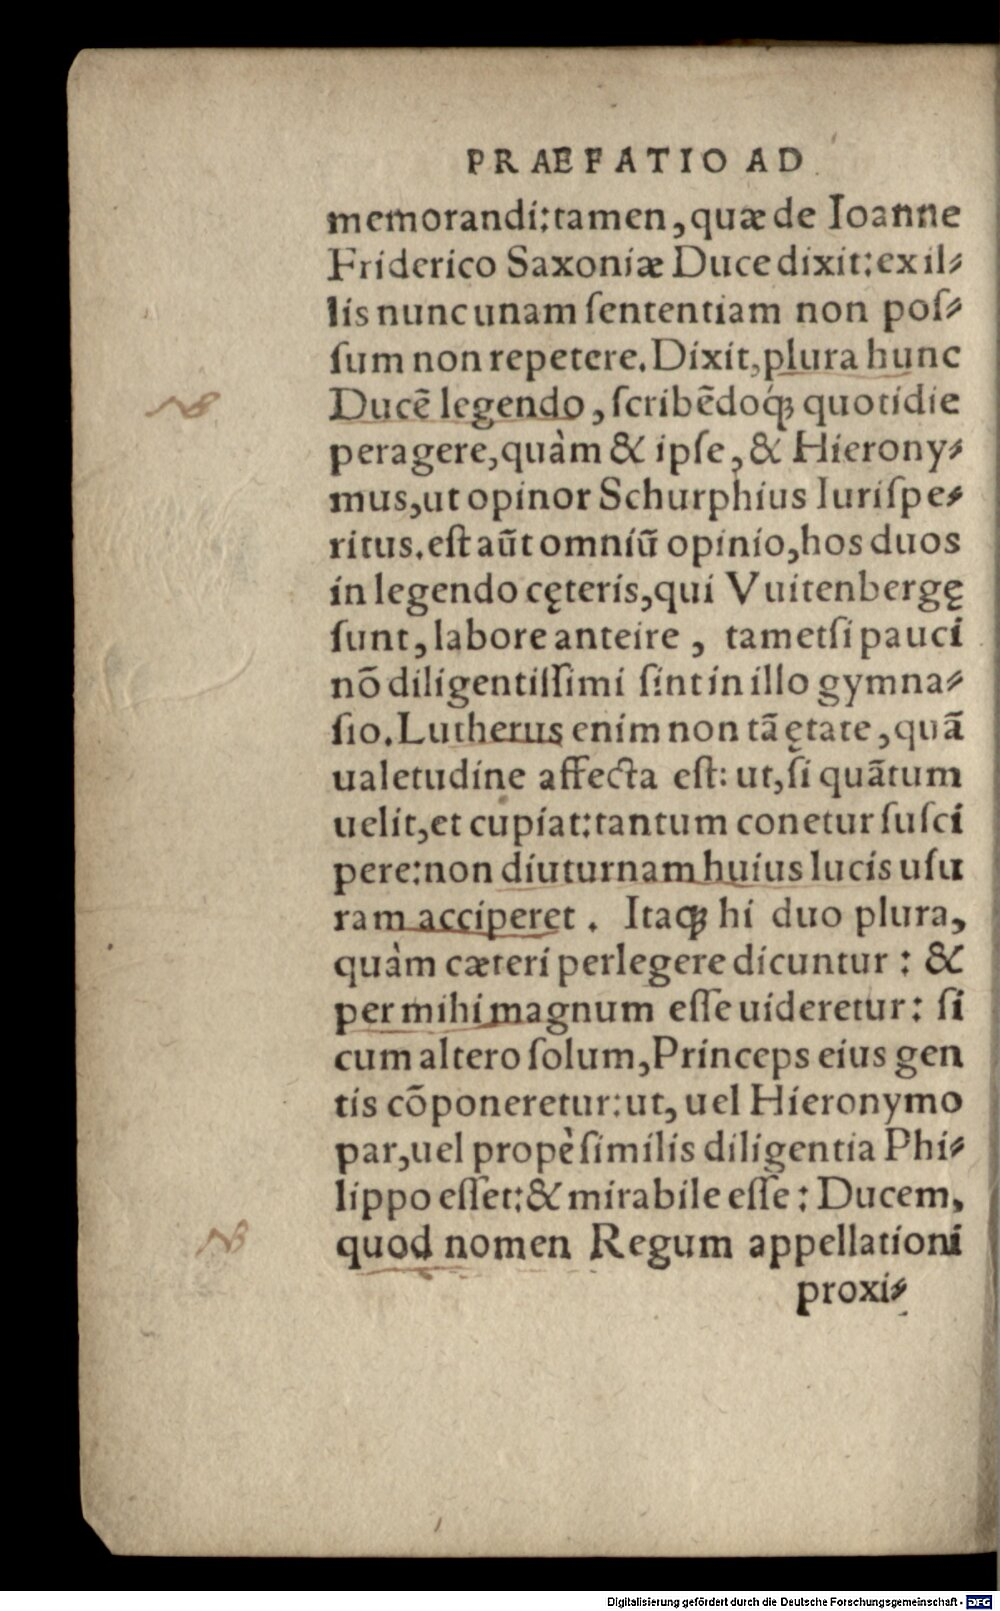 PRAEFATIO AD
memorandi: tamen, quæ de Ioanne
Friderico Saxoniæ Duce dixit: ex il⸗
lis nunc unam ſententiam non poſ⸗
ſum non repetere. Dixit, plura hunc
Ducē legendo, ſcribēdoq́ꝫ quotidie
peragere, quàm & ipſe, & Hierony⸗
mus, ut opinor Schurphius Iuriſpe⸗
ritus. eſt aūt omniū opinio, hos duos
in legendo cęteris, qui Vuitenbergę
ſunt, labore anteire, tametſi pauci
nō diligentiſſimi ſint in illo gymna⸗
ſio. Lutherus enim non tā ętate, quā
ualetudine affecta eſt: ut, ſi quātum
uelit, et cupiat: tantum conetur ſuſci
pere: non diuturnam huius lucis uſu
ram acciperet. Itaqꝫ hi duo plura,
quàm cæteri perlegere dicuntur: &
per mihi magnum eſſe uideretur: ſi
cum altero ſolum, Princeps eius gen
tis cōponeretur: ut, uel Hieronymo
par, uel propè ſimilis diligentia Phi⸗
lippo eſſet: & mirabile eſſe: Ducem,
quod nomen Regum appellationi
proxi⸗
NB
NB
Digitalisierung gefördert durch die Deutsche Forschungsgemeinschaft - DFG